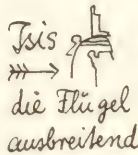 Isis
die Flügel
ausbreitend